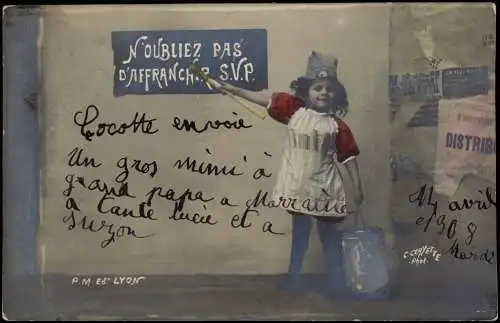 N'OUBLIEZ PAS
D'AFFRANCHIR S.V.P.
Cocotte envoie
Un gros mimi à
grand papa, a Marraine
a tante lucie et a
Suzon
14 avril
1908
Mardi
DISTRIB
C. CERVETTE
Phot.
A.M. Edr LYON